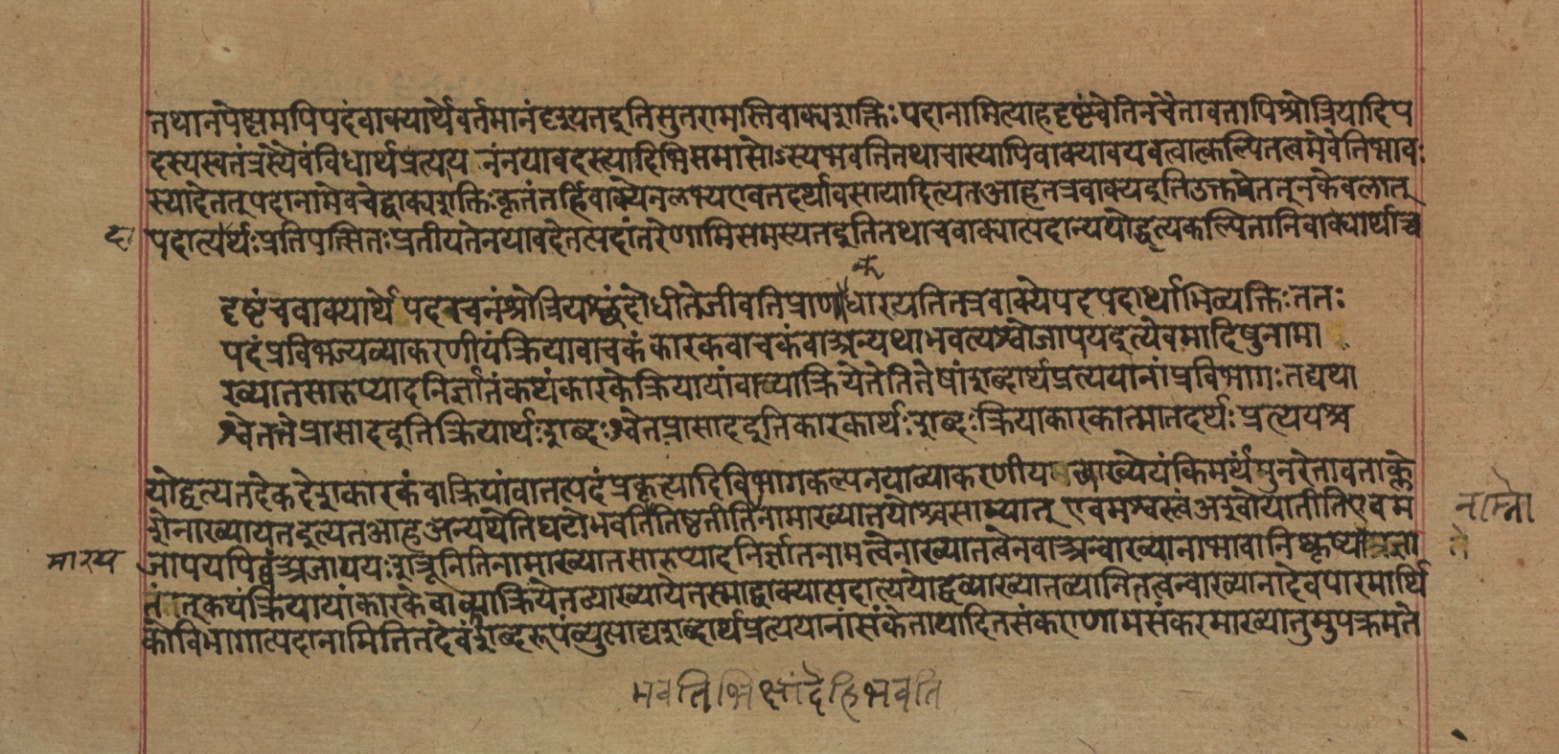 तथानपेक्षमपिपदंवाक्यार्थेवर्तमानंदृश्यतइतिसुतरामस्तिवाक्यशक्तिःपदानामित्याहदृष्टंचेतिनचैतावतापिश्रोत्रियादिप
दस्यस्वतंत्रस्यैवंविधार्थप्रत्यय नंनयावदस्त्यादिभिसमासोऽस्यभवतितथाचास्यापिवाक्यावयवत्वात्कल्पितत्वमेवेतिभावः
स्यादेतत्पदानामेवचेद्वाक्यशक्तिःकृतंतर्हिवाक्येनलभ्यएवतदर्थावसायादित्यतआहतत्रवाक्यइतिउक्तमेतत्नकेवलात्
दा
पदात्पर्थःप्रतिपित्सितःप्रतीयतेनयावदेतत्पदांतरेणाभिसमस्यतइतितथाचवाक्यात्पदान्यपोद्धृत्यकल्पितानिवाक्यार्थाच्च
क
दृष्टंचवाक्यार्थे पदरचनंश्रोत्रियश्छंदोधीतेजीवतिप्राणाधारयतितत्रवाक्येपदपदार्थाभिव्यक्तिःततः
पदंप्रविभज्यव्याकरणीयंक्रियावाचकं कारकवाचकंवाअन्यथाभवत्यश्वोजापयइत्येवमादिषुनामा
ख्यातसारूप्यादनिर्ज्ञातंकथंकारकेक्रियायांवाव्याक्रियेतेतितेषांशब्दार्थप्रत्ययानांप्रविभागःतद्यथा
श्वेततेप्रासादइतिक्रियार्थःशब्दःश्वेतप्रासादइतिकारकार्थःशब्दःक्रियाकारकात्मातदर्थः प्रत्ययश्च
योद्धृत्यतदेकदेशकारकंवाक्रियांवातत्पदंप्रकृत्यादिविभागकल्पनयाव्याकरणीयमन्वाख्येयंकिमर्थंपुनरेतावताक्ले
शेनाख्यायतइत्यतआहअन्यथेतिघटोभवतितिष्ठतीतिनामाख्यातयोश्चसाम्यात् एवमश्वस्त्वंअश्वोयातीतिएवम
नाम्नो
मारव्य
जापयपिबअजापयःशत्रूनितिनामाख्यातसारूप्यादनिर्ज्ञातनामत्वेनाख्यातत्वेनवाअन्वाख्यानाभावानिष्कृष्याज्ञा
ते
तंतत्कथंक्रियायांकारकेवाव्याक्रियेततस्माद्वाक्यात्पदात्यपोद्धव्याख्यातव्यानितत्वन्वाख्यानादेवपारमार्थि
कोविभागात्पदानामितितदेवंशब्दरूपंव्युत्पाद्यशब्दार्थप्रत्ययानांसंकेताथाहितसंकराणामसंकरमाख्यातुमुपक्रमते
भवतिभिक्षांदेहिभवति